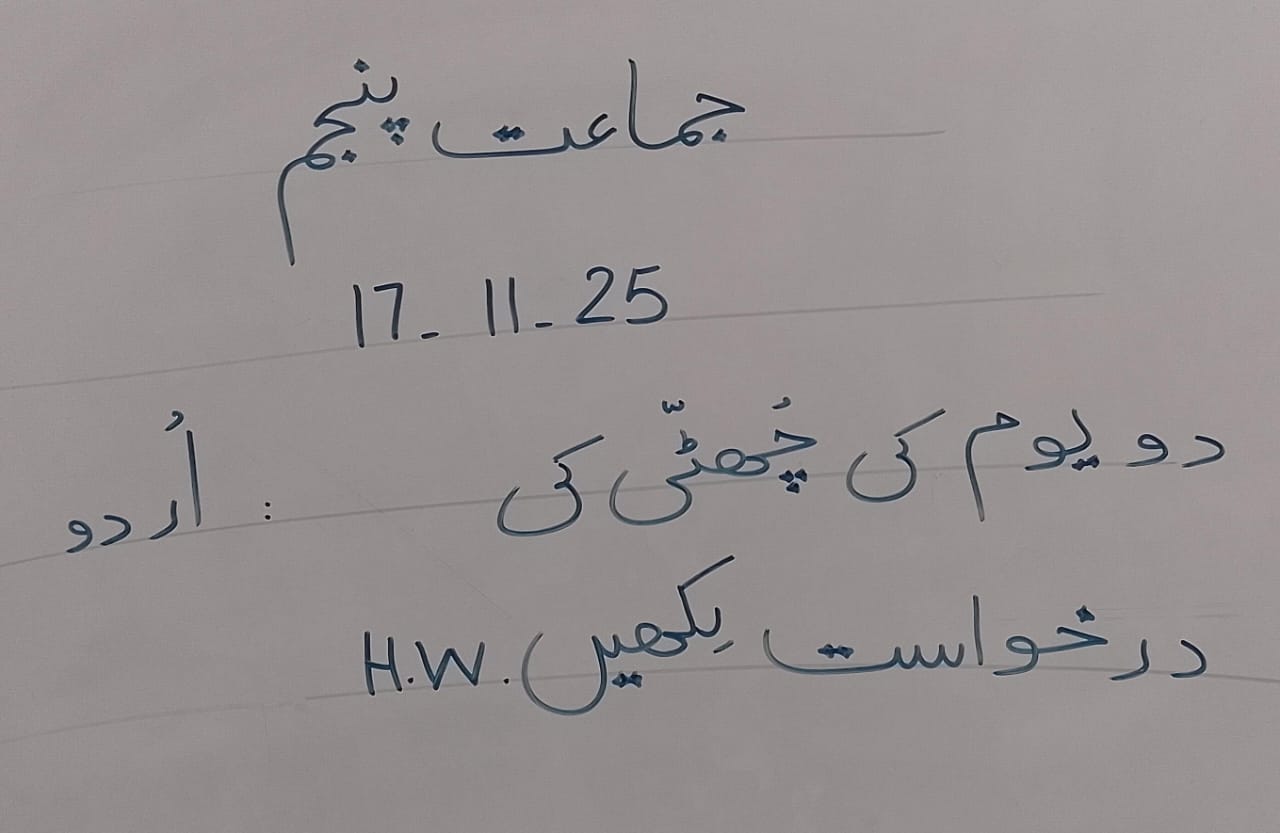 جماعت پنجم
17-11-25
دو یوم کی چُھٹّی کی : اُردو
درخواست لِکھیں. H.W